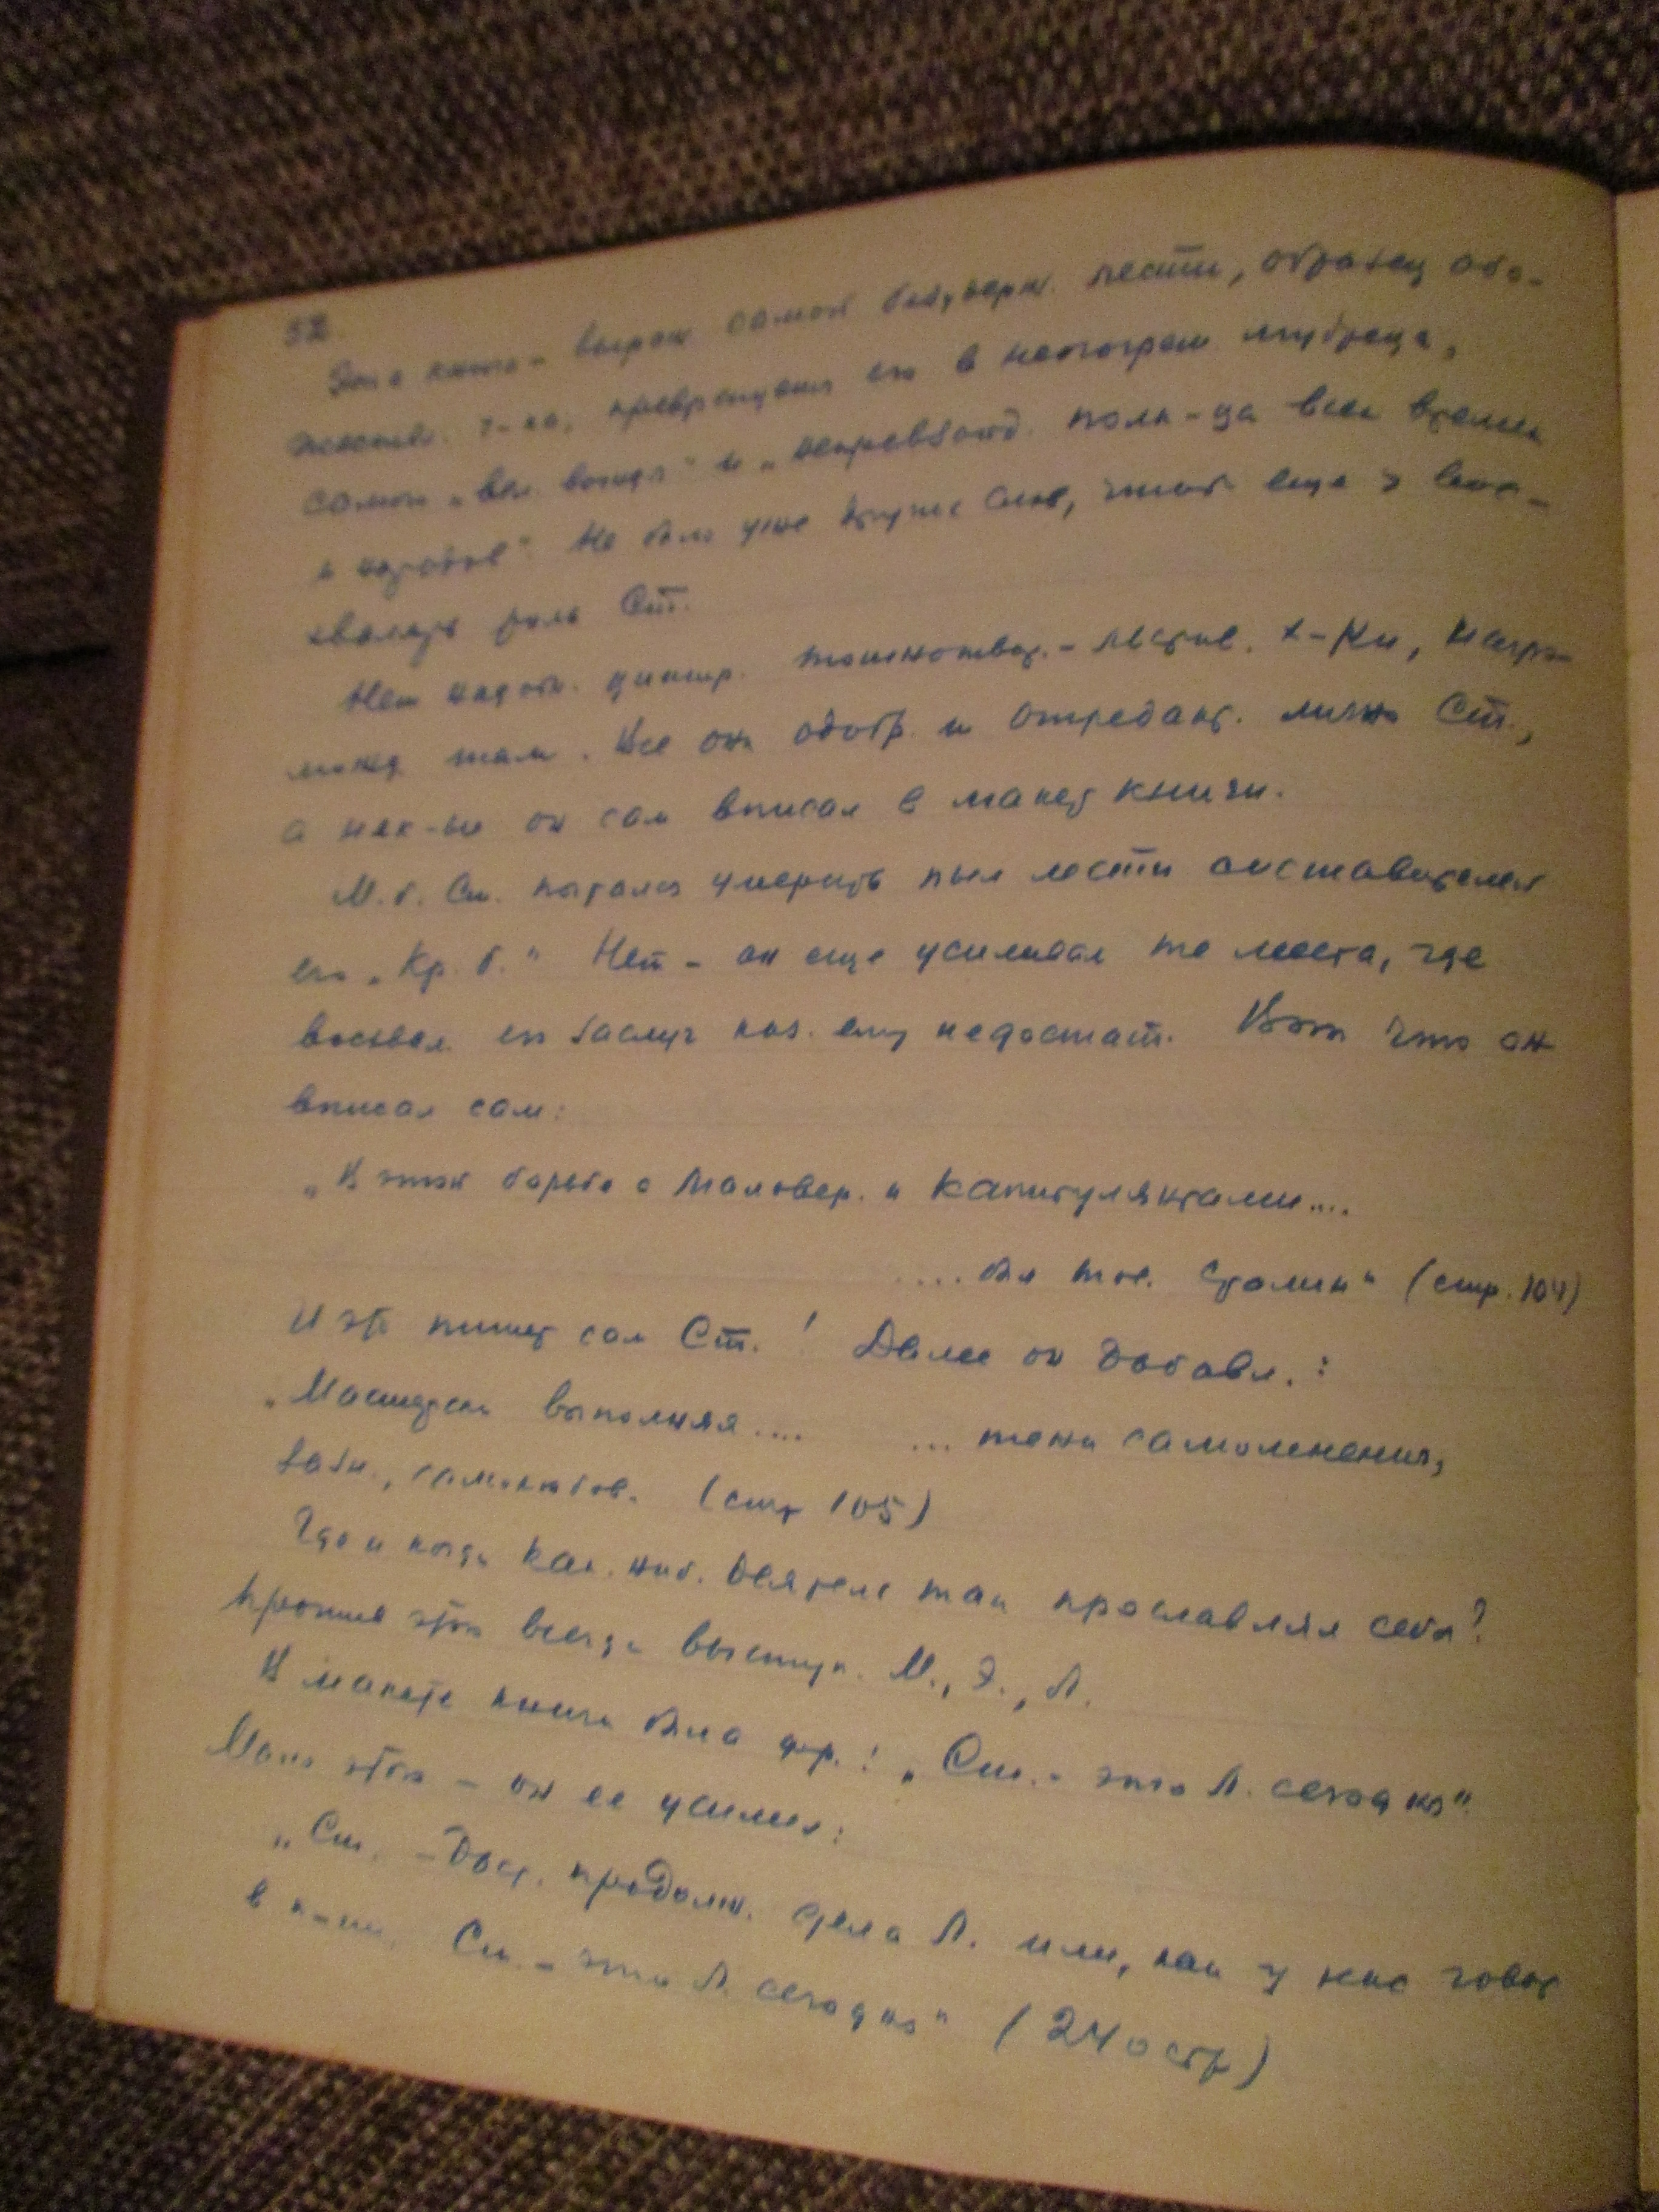 52.
Эта книга – выраж. самой безудерж. лести, образец обо-
жествл. ч-ка, превращения его в непогреш. мудреца,
самого „вел. вождя" и „непревзойд. полк-ца всех времен
и народов". Не было уже других слов, чтоб еще > восх-
валять роль Ст.
Нет надобн. цитир. тошнотвор. – льстив. х-ки, нагро-
можд. там. Все они одобр. и отредакт. лично Ст.,
а нек-ые он сам вписал в макет книги.
М. б. Ст. пытался умерить пыл лести составителей
его „Кр. б." Нет – он еще усиливал те места, где
восхвал. его заслуг каз. ему недостат. Вот что он
вписал сам:
„В этой борьбе с маловер. и капитулянтами....
.... был тов. Сталин" (стр. 104)
И это пишет сам Ст.! Далее он добавл.:
„Мастерски выполняя.... ... тени самомнения,
зазн., самолюбов. (стр 105)
Где и когда как. ниб. деятель так прославлял себя?
Против этого всегда выступ. М., Э., Л.
В макете книги была фр.: „Ст. – это Л. сегодня".
Мало этого – он ее усилил:
„Ст. – дост. продолж. дела Л. или, как у нас говор
в п-ии, Ст. – это Л. сегодня" (240 стр)